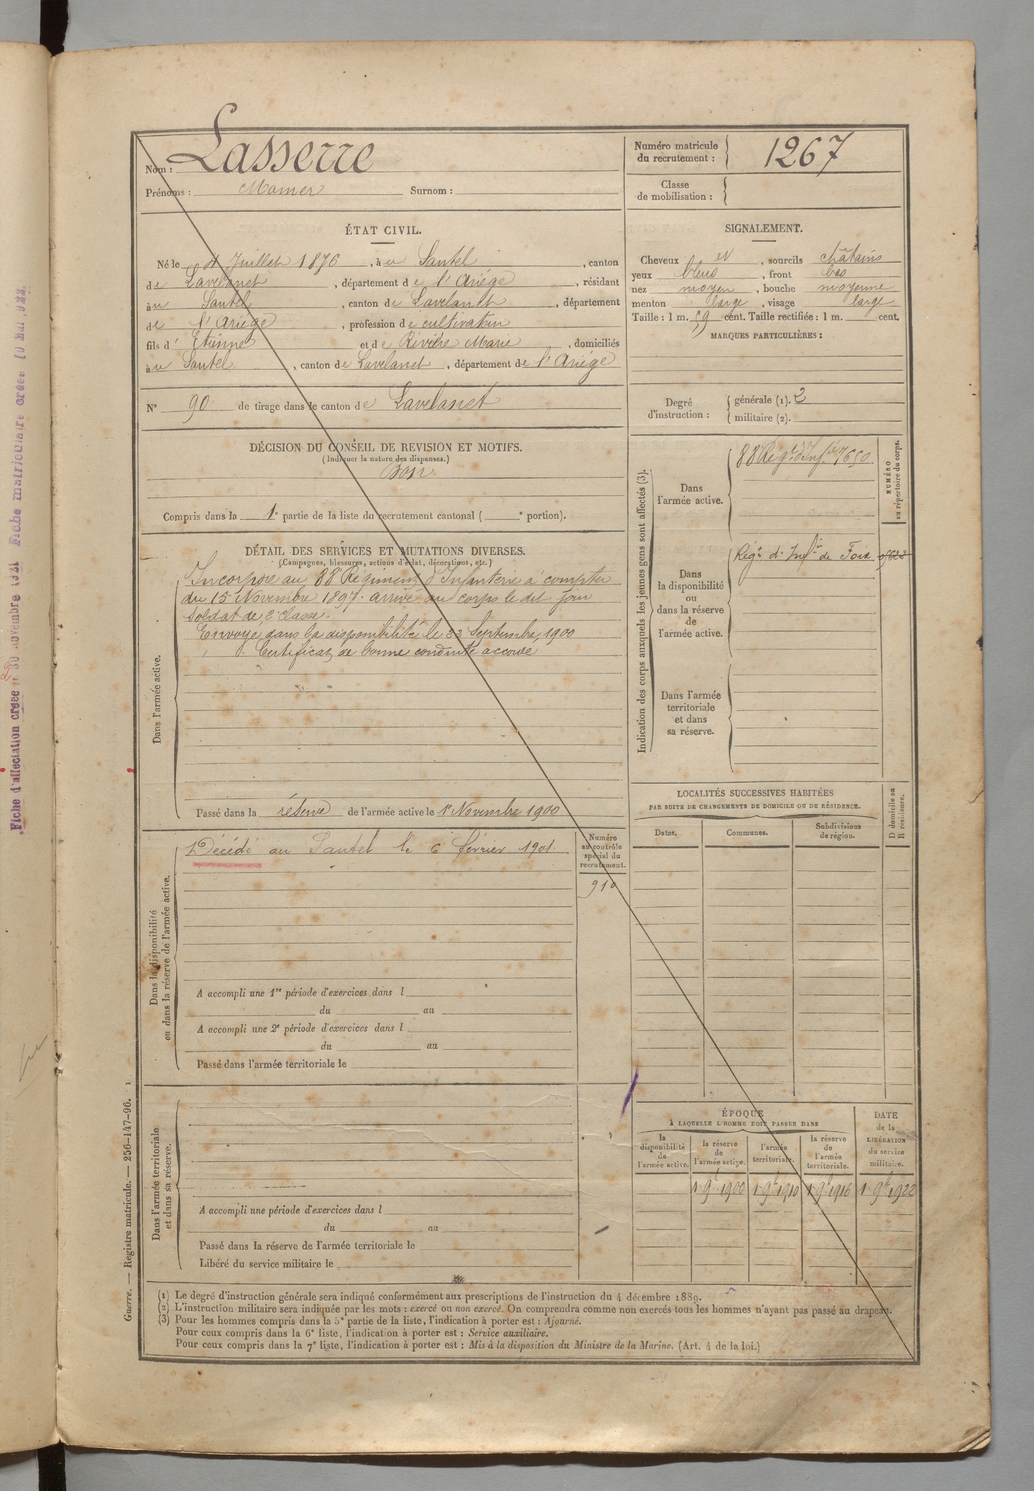 Lasserre
Nom :
Prénoms : Mamer Surnom :
Numéro matricule
du recrutement : 1267
Classe
de mobilisation :
ÉTAT CIVIL.
Né le 4 Juillet 1876, à Sautel, canton
de Lavelanet, département de l'Ariége, résidant
à Sautel, canton de Lavelanet, département
de l'Ariége, profession de cultivateur
fils d' Etienne et de Rivière Marie, domiciliés
à Sautel, canton de Lavelanet, département de l'Ariége
N° 90 de tirage dans le canton de Lavelanet
SIGNALEMENT.
Cheveux et, sourcils châtains
yeux bleus, front bas
nez moyen, bouche moyenne
menton large, visage large
Taille : 1 m. 59 cent. Taille rectifiée : 1 m. cent.
MARQUES PARTICULIÈRES :
Degré
d'instruction :
générale (1). 3
militaire (2).
DÉCISION DU CONSEIL DE REVISION ET MOTIFS.
(Indiquer la nature des dispenses.)
Bon
Compris dans la 1e partie de la liste du recrutement cantonal ( e portion).
DÉTAIL DES SERVICES ET MUTATIONS DIVERSES.
(Campagnes, blessures, actions d'éclat, décorations, etc.)
Dans l'armée active.
Incorporé au 88e Régiment d'Infanterie à compter
du 15 Novembre 1897. arrivé au corps le dit jour
soldat de 2e classe.
Envoyé dans la disponibilité le 22 Septembre 1900
Certificat de bonne conduite accordé
Passé dans la réserve de l'armée active le 1er Novembre 1900
Indication des corps auxquels les jeunes gens sont affectés (3).
NUMÉRO
au répertoire du corps.
Dans
l'armée active.
88 Régt d'Infie 7650
Dans
la disponibilité
ou
dans la réserve
de
l'armée active.
Régt d'Infie de Foix
Dans l'armée
territoriale
et dans
sa réserve.
Dans la disponibilité
ou dans la réserve de l'armée active.
Décédé au Sautel le 6 février 1901
Numéro
au contrôle
spécial du
recrutement.
910
A accompli une 1re période d'exercices dans l
du au
A accompli une 2e période d'exercices dans l
du au
Passé dans l'armée territoriale le
LOCALITÉS SUCCESSIVES HABITÉES
PAR SUITE DE CHANGEMENTS DE DOMICILE OU DE RÉSIDENCE.
Dates.
Communes.
Subdivisions
de région.
D domicile ou
R résidence.
Dans l'armée territoriale
et dans sa réserve.
A accompli une période d'exercices dans l
du au
Passé dans la réserve de l'armée territoriale le
Libéré du service militaire le
ÉPOQUE
À LAQUELLE L'HOMME DOIT PASSER DANS
la
disponibilité
de
l'armée active.
la réserve
de
l'armée active.
l'armée
territoriale.
la réserve
de
l'armée
territoriale.
DATE
de la
LIBÉRATION
du service
militaire.
1 9bre 1900 1 9bre 1910 1 9bre 1916 1 9bre 1922
(1) Le degré d'instruction générale sera indiqué conformément aux prescriptions de l'instruction du 4 décembre 1889.
(2) L'instruction militaire sera indiquée par les mots : exercé ou non exercé. On comprendra comme non exercés tous les hommes n'ayant pas passé au drapeau.
(3) Pour les hommes compris dans la 5e partie de la liste, l'indication à porter est : Ajourné.
Pour ceux compris dans la 6e liste, l'indication à porter est : Service auxiliaire.
Pour ceux compris dans la 7e liste, l'indication à porter est : Mis à la disposition du Ministre de la Marine. (Art. 4 de la loi.)
Guerre. — Registre matricule. — 256-147-96.
Fiche d'affectation créée 30 novembre 1921 Fiche matriculaire créée 10 Mai